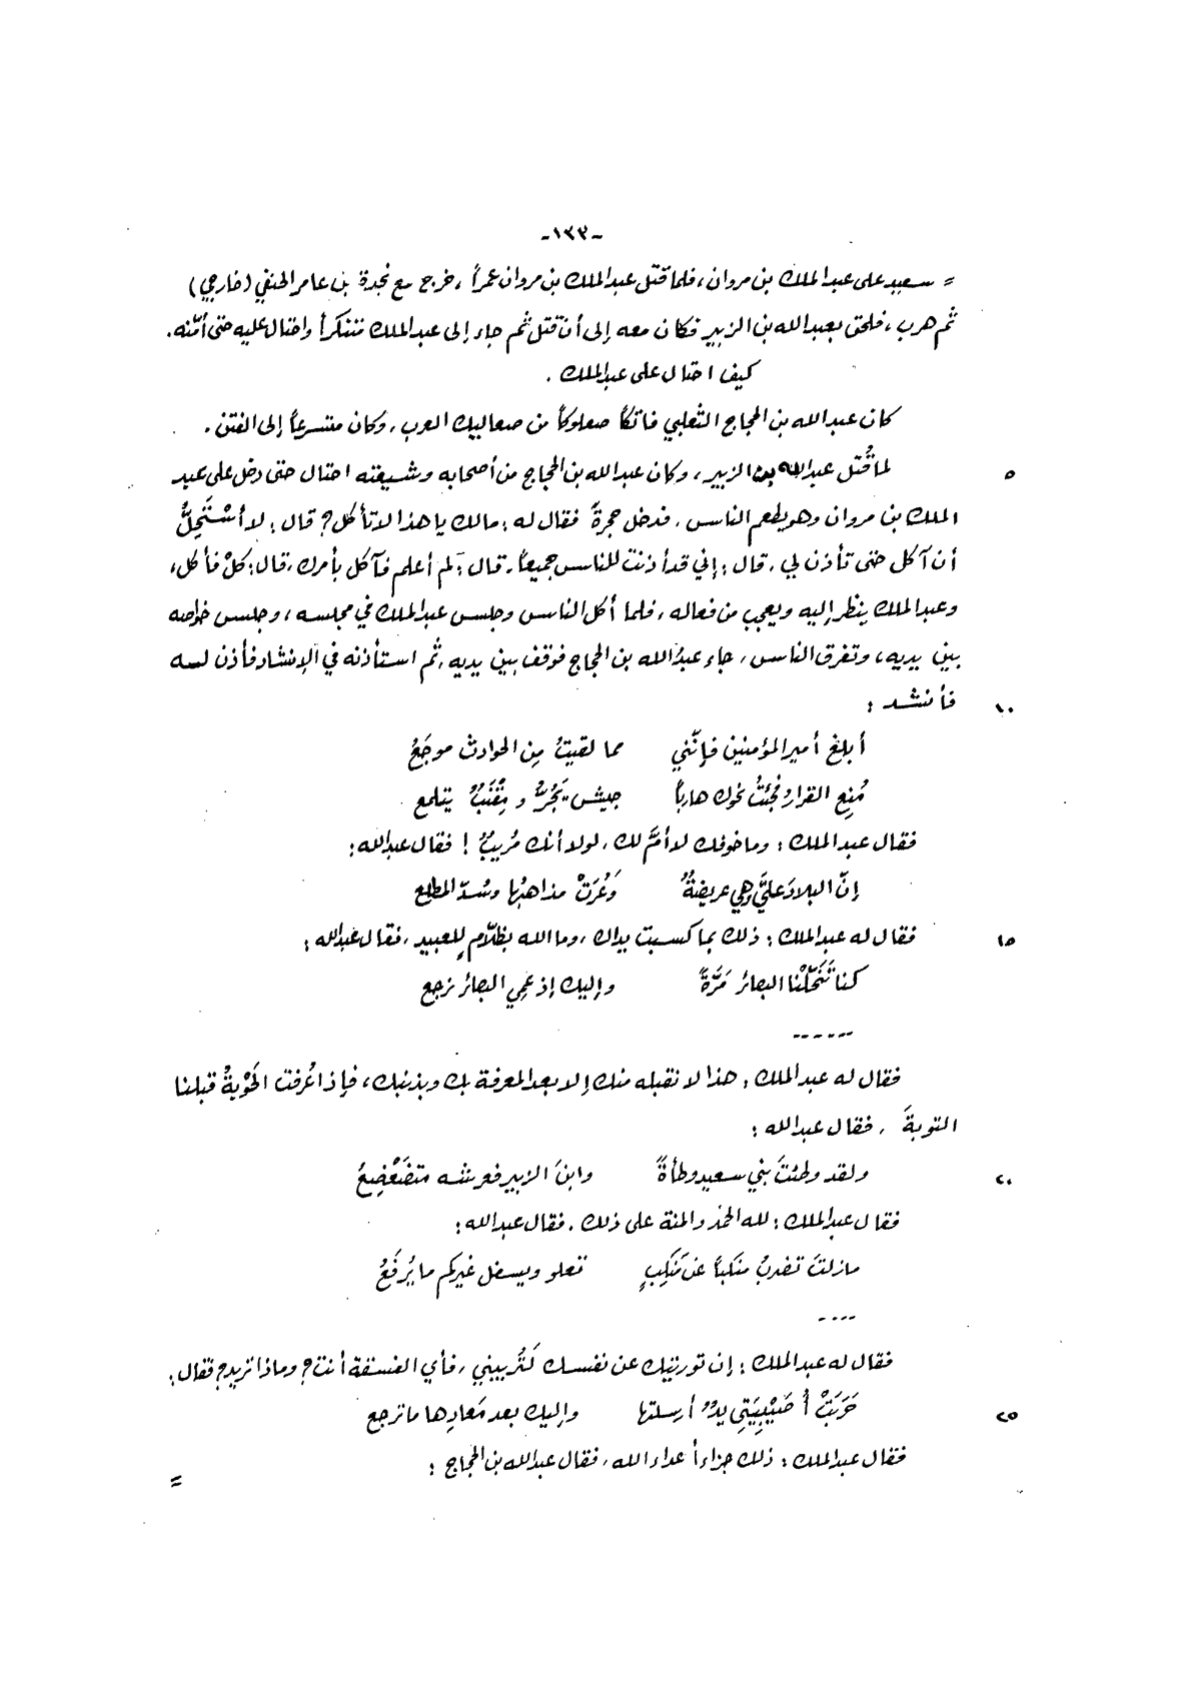 -١٣٣-
= سعيد على عبد الملك بن مروان، فلما قتل عبد الملك بن مروان عمراً، خرج مع نجدة بن عامر الحنفي (خارجي)
ثم هرب، فلحق بعبد الله بن الزبير فكان معه إلى أن قتل ثم جاء إلى عبد الملك متنكراً واحتال عليه حتى أمّنه.
كيف احتال على عبد الملك.
كان عبد الله بن الحجاج الثعلبي فاتكاً صعلوكاً من صعاليك العرب، وكان متسرعاً إلى الفتن.
لما قُتل عبد الله بن الزبير، وكان عبد الله بن الحجاج من أصحابه وشيعته احتال حتى دخل على عبد ٥
الملك بن مروان وهو يطعم الناس، فدخل حجرةً فقال له: مالك يا هذا لا تأكل؟ قال: لا أسْتَحِلُّ
أن آكل حتى تأذن لي، قال: إني قد أذنت للناس جميعاً، قال: لم أعلم فآكل بأمرك، قال: كلْ فأكل،
وعبد الملك ينظر إليه ويعجب من فعاله، فلما أكل الناس وجلس عبد الملك في مجلسه، وجلس خواصه
بين يديه، وتفرق الناس، جاء عبدُ الله بن الحجاج فوقف بين يديه، ثم استأذنه في الإنشاد فأذن لسه
فأنشد: ١٠
أبلغ أمير المؤمنين فإنّني مما لقيتُ مِن الحوادث موجَعُ
مُنِع القرارُ فجئتُ نحوك هارباً جيشٌ يَجُرُّ ومِقْنَبٌ يتلمع
فقال عبد الملك: وما خوفك لا أمَّ لك، لولا أنك مُريبٌ! فقال عبد الله:
إنّ البلادَ عليَّ وهي عريضةٌ وَعُرَتْ مذاهبُها وسُدّ المطلع
فقال له عبد الملك: ذلك بما كسبت يداك، وما الله بظلّامٍ للعبيد، فقال عبد الله: ١٥
كنا تَنَحّلْنا البصائر مَرَّةً وإليك إذ عَمِي البصائر نرجع
------
فقال له عبد الملك: هذا لا نقبله منك إلا بعد المعرفة بك وبذنبك، فإذا عُرفت الحَوْبةُ قبلنا
التوبةَ، فقال عبد الله:
ولقد وطئتَ بني سعيدٍ وطأةً وابنَ الزبير فعرشه متضَعْضِعُ ٢٠
فقال عبد الملك: لله الحمد والمنة على ذلك، فقال عبد الله:
مازلتَ تضربُ منكباً عن مَنْكِبٍ تعلو ويسفل غيركم ما يُرفَعُ
----
فقال له عبد الملك: إن توريتك عن نفسك لَتُريبني، فأي الفسقة أنت؟ وماذا تريد؟ فقال:
حَرَبَتْ أُصَيْبِيَتي يدٌ أرسلتها وإليك بعد مَعادِها ما ترجع ٢٥
فقال عبد الملك: ذلك جزاء أعداء الله، فقال عبد الله بن الحجاج:
=